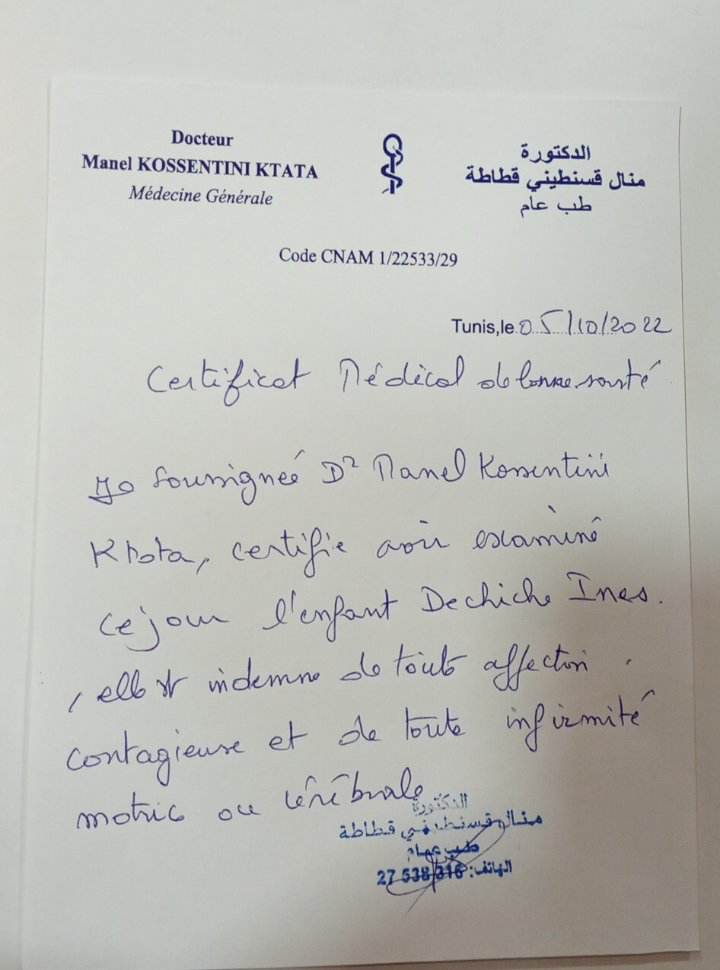 Docteur
Manel KOSSENTINI KTATA
Médecine Générale
الدكتورة
منال قسنطيني قطاطة
طب عام
Code CNAM 1/22533/29
Tunis,le 05/10/2022
Certificat Médical de bonne santé
Je soussignée Dr Manel Kossentini
Ktata, certifie avoir examiné
ce jour l'enfant Dechiche Ines.
, elle est indemne de toute affection
contagieuse et de toute infirmité
motrice ou cérébrale
الدكتورة
منال قسنطيني قطاطة
طب عام
الهاتف: 27 538 316